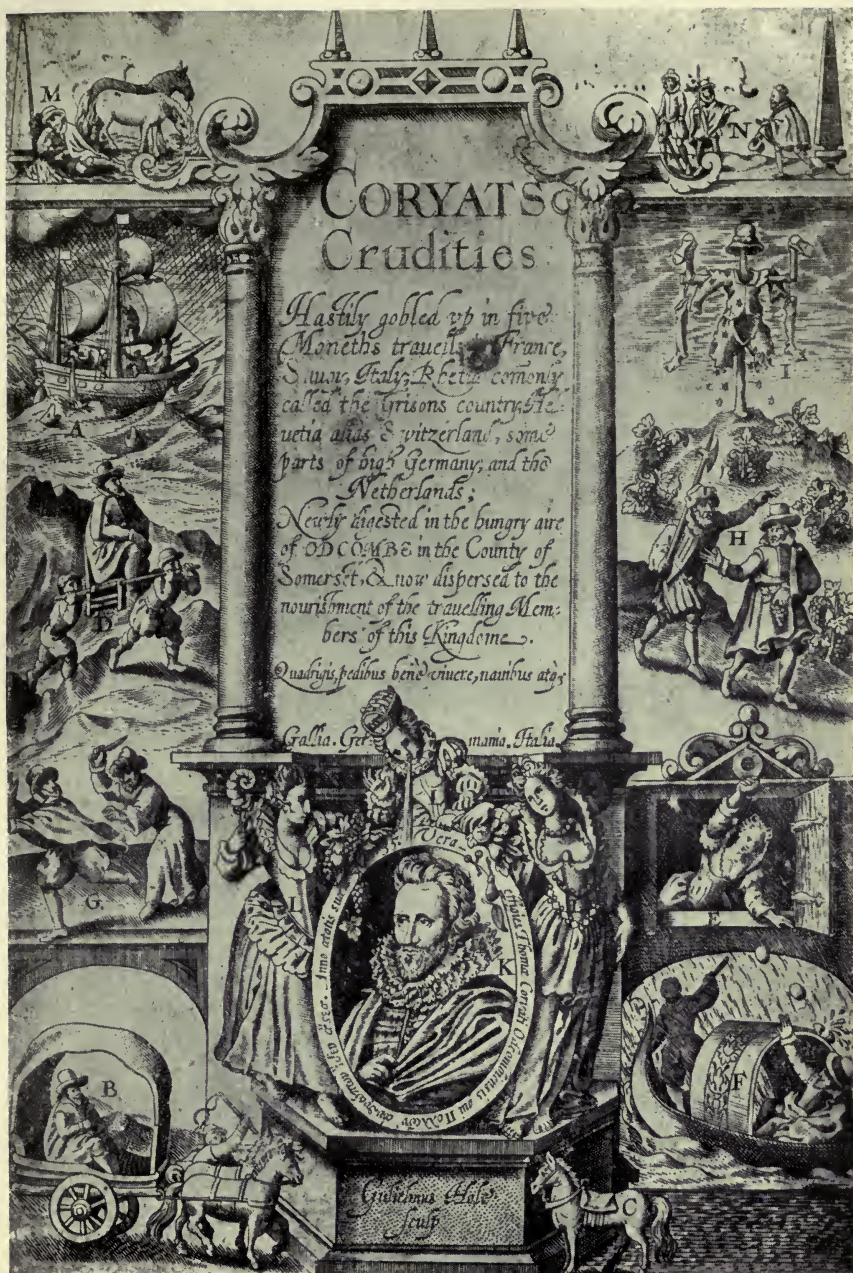 M
N
CORYATS
Crudities
Hastily gobled vp in five
Moneths travells France,
Sauoy, Italy, Rhetia comonly
called the Grisons country, He-
uetia alias Switzerland, some
parts of high Germany, and the
Netherlands;
Newly digested in the hungry aire
of ODCOMBE in the County of
Somerset, & now dispersed to the
nourishment of the travelling Mem-
bers of this Kingdome.
Quadrigis, pedibus benè viuere, nauibus atq,
Gallia. Ger mania. Italia.
A
D
G.
B
I
H
E
F
C
L
K
Vera effigies Thomæ Coryati
Anno ætatis suæ
Gulielmus Hole
sculp